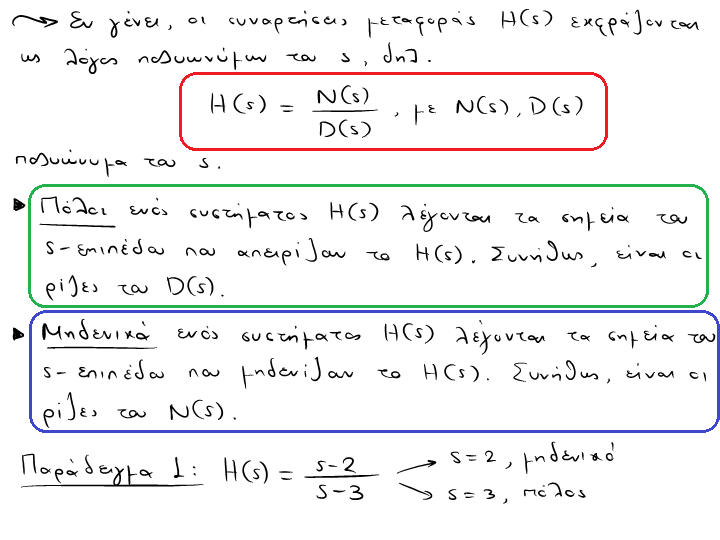 Εν γένει, οι συναρτήσεις μεταφοράς H(s) εκφράζονται
ως λόγος πολυωνύμων του s, δηλ.
H(s) = N(s)/D(s), με N(s), D(s)
πολυώνυμα του s.
Πόλοι ενός συστήματος H(s) λέγονται τα σημεία του
s-επιπέδου που απειρίζουν το H(s). Συνήθως, είναι οι
ρίζες του D(s).
Μηδενικά ενός συστήματος H(s) λέγονται τα σημεία του
s-επιπέδου που μηδενίζουν το H(s). Συνήθως, είναι οι
ρίζες του N(s).
Παράδειγμα 1: H(s) = s-2/s-3
s=2, μηδενικό
s=3, πόλος